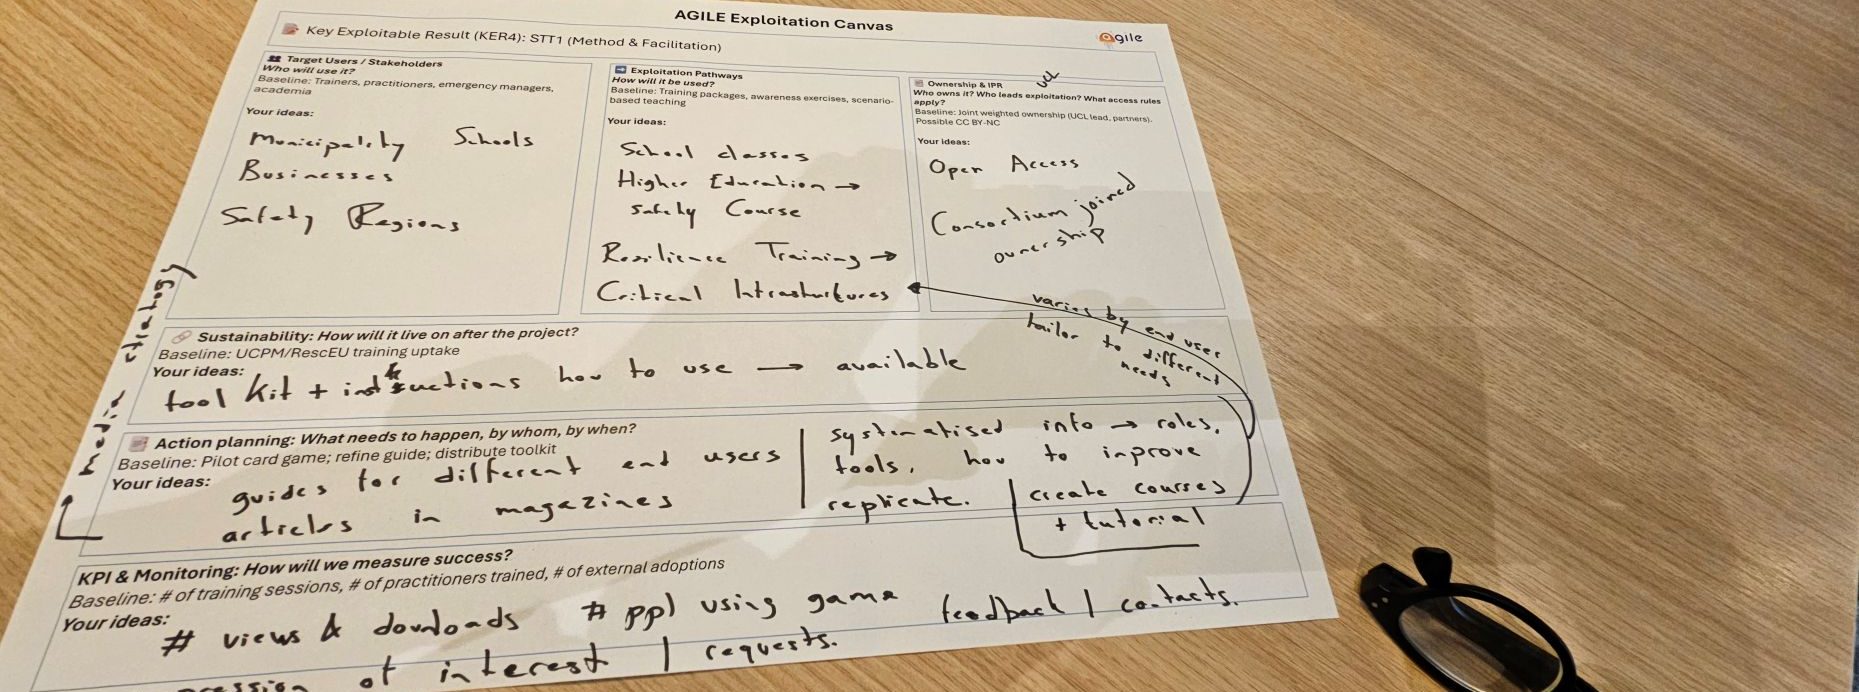 AGILE Exploitation Canvas
agile
Key Exploitable Result (KER4): STT1 (Method & Facilitation)
Target Users / Stakeholders
Who will use it?
Baseline: Trainers, practitioners, emergency managers,
academia
Your ideas:
Municipality Schools
Businesses
Safety Regions
Exploitation Pathways
How will it be used?
Baseline: Training packages, awareness exercises, scenario-
based teaching
Your ideas:
School classes
Higher Education →
Safety Course
Resilience Training →
Critical Infrastructures
UCL
Ownership & IPR
Who owns it? Who leads exploitation? What access rules
apply?
Baseline: Joint weighted ownership (UCL lead, partners).
Possible CC BY-NC
Your ideas:
Open Access
Consortium joined
ownership
varies by end user
tailor to different
needs
Sustainability: How will it live on after the project?
Baseline: UCPM/RescEU training uptake
Your ideas:
tool kit + instructions how to use → available
media strategy
Action planning: What needs to happen, by whom, by when?
Baseline: Pilot card game; refine guide; distribute toolkit
Your ideas:
guides for different end users
articles in magazines
systematised info → roles,
tools, how to improve
replicate.
create courses
+ tutorial
KPI & Monitoring: How will we measure success?
Baseline: # of training sessions, # of practitioners trained, # of external adoptions
Your ideas:
# views & downloads # ppl using game feedback / contacts.
of interest / requests.